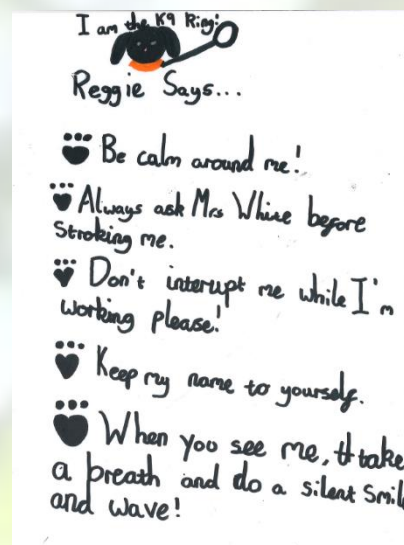 I am the K9 Ringi
Reggie Says...
Be calm around me!
Always ask Mrs White before
Stroking me.
Don't interupt me while I'm
working please!
Keep my name to yourself.
When you see me, take
a breath and do a silent Smile
and wave!